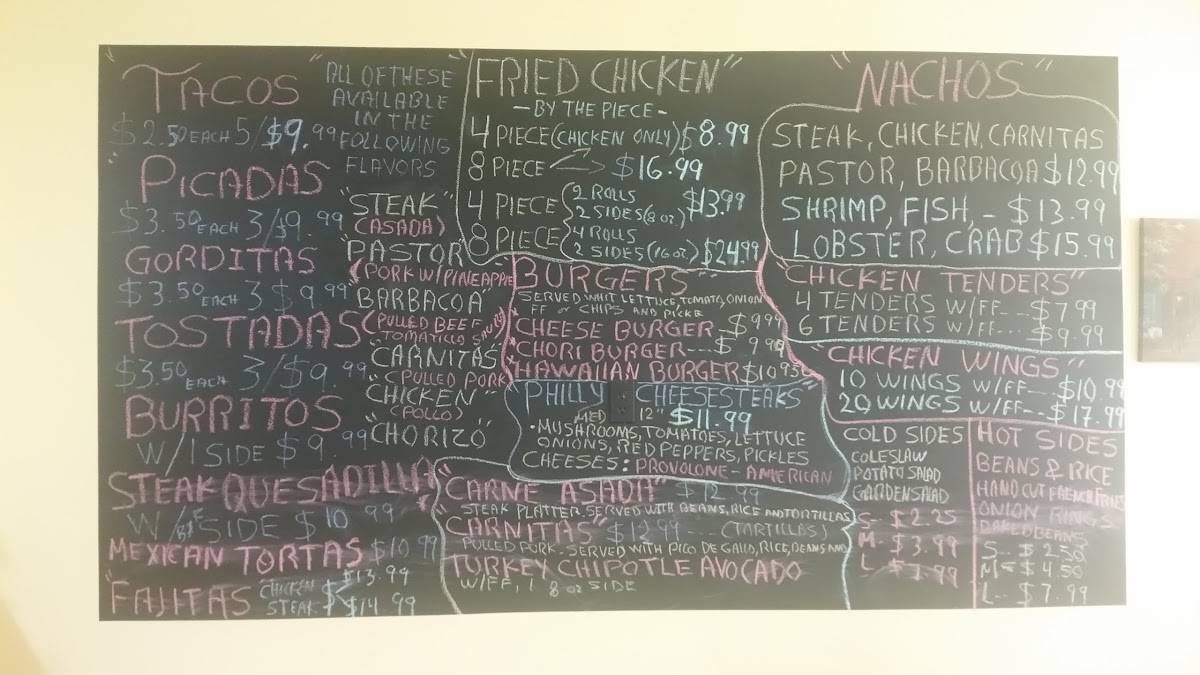 "TACOS"
$2.50 EACH 5/$9.99
"PICADAS
$3.50 EACH 3/$9.99
GORDITAS
$3.50 EACH 3 $9.99
TOSTADAS
$3.50 EACH 3/$9.99
BURRITOS
W/1 SIDE $9.99
STEAK QUESADILLA"
W/ SIDE $10.99
MEXICAN TORTAS $10.99
"FAJITAS CHICKEN $13.99
STEAK $14.99
ALL OF THESE
AVAILABLE
IN THE
FOLLOWING
FLAVORS
"STEAK"
(CASADA)
"PASTOR"
(PORK W/PINEAPPLE
"BARBACOA"
(PULLED BEEF
TOMATILLO SAUCE)
CARNITAS
(PULLED PORK)
"CHICKEN"
(POLLO)
"CHORIZO"
"FRIED CHICKEN"
-BY THE PIECE-
4 PIECE (CHICKEN ONLY) $8.99
8 PIECE $16.99
4 PIECE 2 ROLLS
2 SIDES (8 OZ) $13.99
8 PIECE 4 ROLLS
2 SIDES (16 OZ) $24.99
BURGERS"
SERVED WHIT LETTUCE, TOMATO, ONION
FF or CHIPS AND PICKE
CHEESE BURGER $9.99
CHORI BURGER---$9.99
HAWAIIAN BURGER $10.95
PHILLY CHEESESTEAKS
MED 12" $11.99
-MUSHROOMS, TOMATOES, LETTUCE
ONIONS, RED PEPPERS, PICKLES
CHEESES: PROVOLONE - AMERICAN
"CARNE ASADA" $12.99
STEAK PLATTER. SERVED WITH BEANS, RICE AND TORTILLAS
CARNITAS" $12.99 ---(TARTILLAS)
PULLED PORK - SERVED WITH PICO DE GALLO, RICE, BEANS AND
TURKEY CHIPOTLE AVOCADO
W/FF, 1 8 OZ SIDE
"NACHOS"
STEAK, CHICKEN, CARNITAS
PASTOR, BARBACOA $12.99
SHRIMP, FISH, - $13.99
LOBSTER, CRAB $15.99
"CHICKEN TENDERS"
4 TENDERS W/FF--- $7.99
6 TENDERS W/FF---- $9.99
"CHICKEN WINGS"
10 WINGS W/FF-- $10.99
20 WINGS W/FF-- $17.99
COLD SIDES
COLESLAW
POTATO SALAD
GARDEN SALAD
S- $2.25
M- $3.99
L- $7.99
HOT SIDES
BEANS & RICE
HAND CUT FRENCH FRIES
ONION RINGS
BAKED BEANS
S-- $2.50
M-- $4.50
L-- $7.99